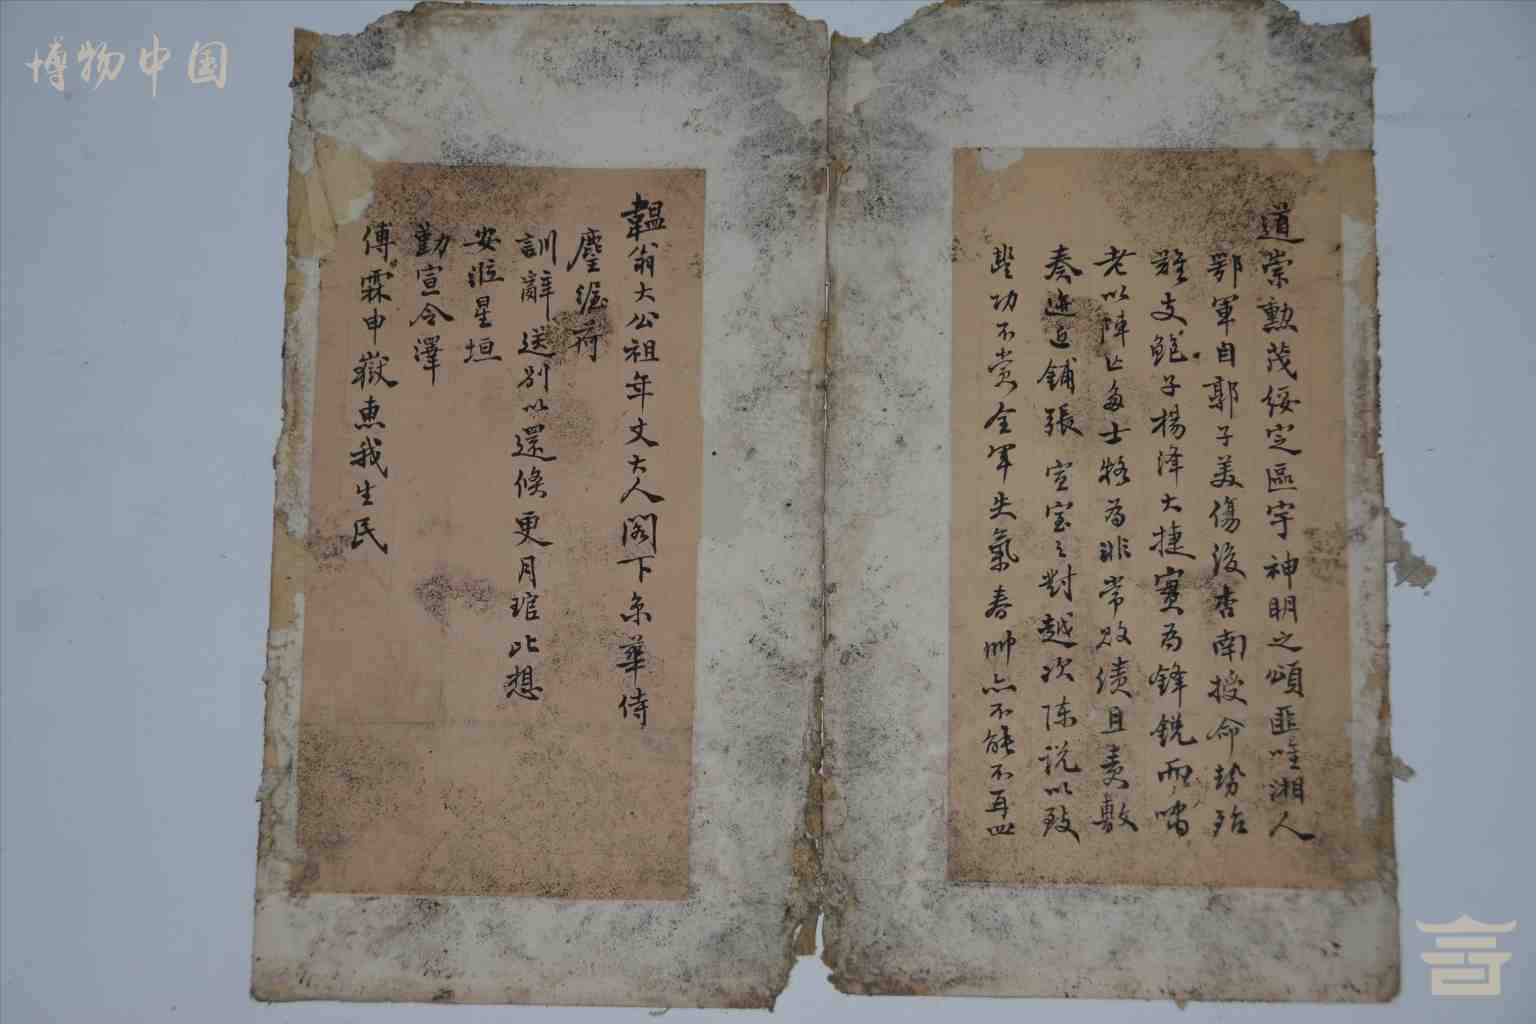 博物中国
道崇勳茂綏定區宇神明之頌匪唯湘人
鄂軍自郭子美傷後杏南授命勢殆
難支鮑子楊澤大捷實為鋒銳而
老以陣亡多士為非常敗績且責敷
奏迹近鋪張宣室之對越次陳說以致
豐功不賞全軍失氣春帥亦不能不再四
韞翁大公祖年丈大人閣下京華侍
麈荷
訓辭送別以還倏更月琯比想
安涖星垣
勤宣令澤
傅霖申嶽惠我生民